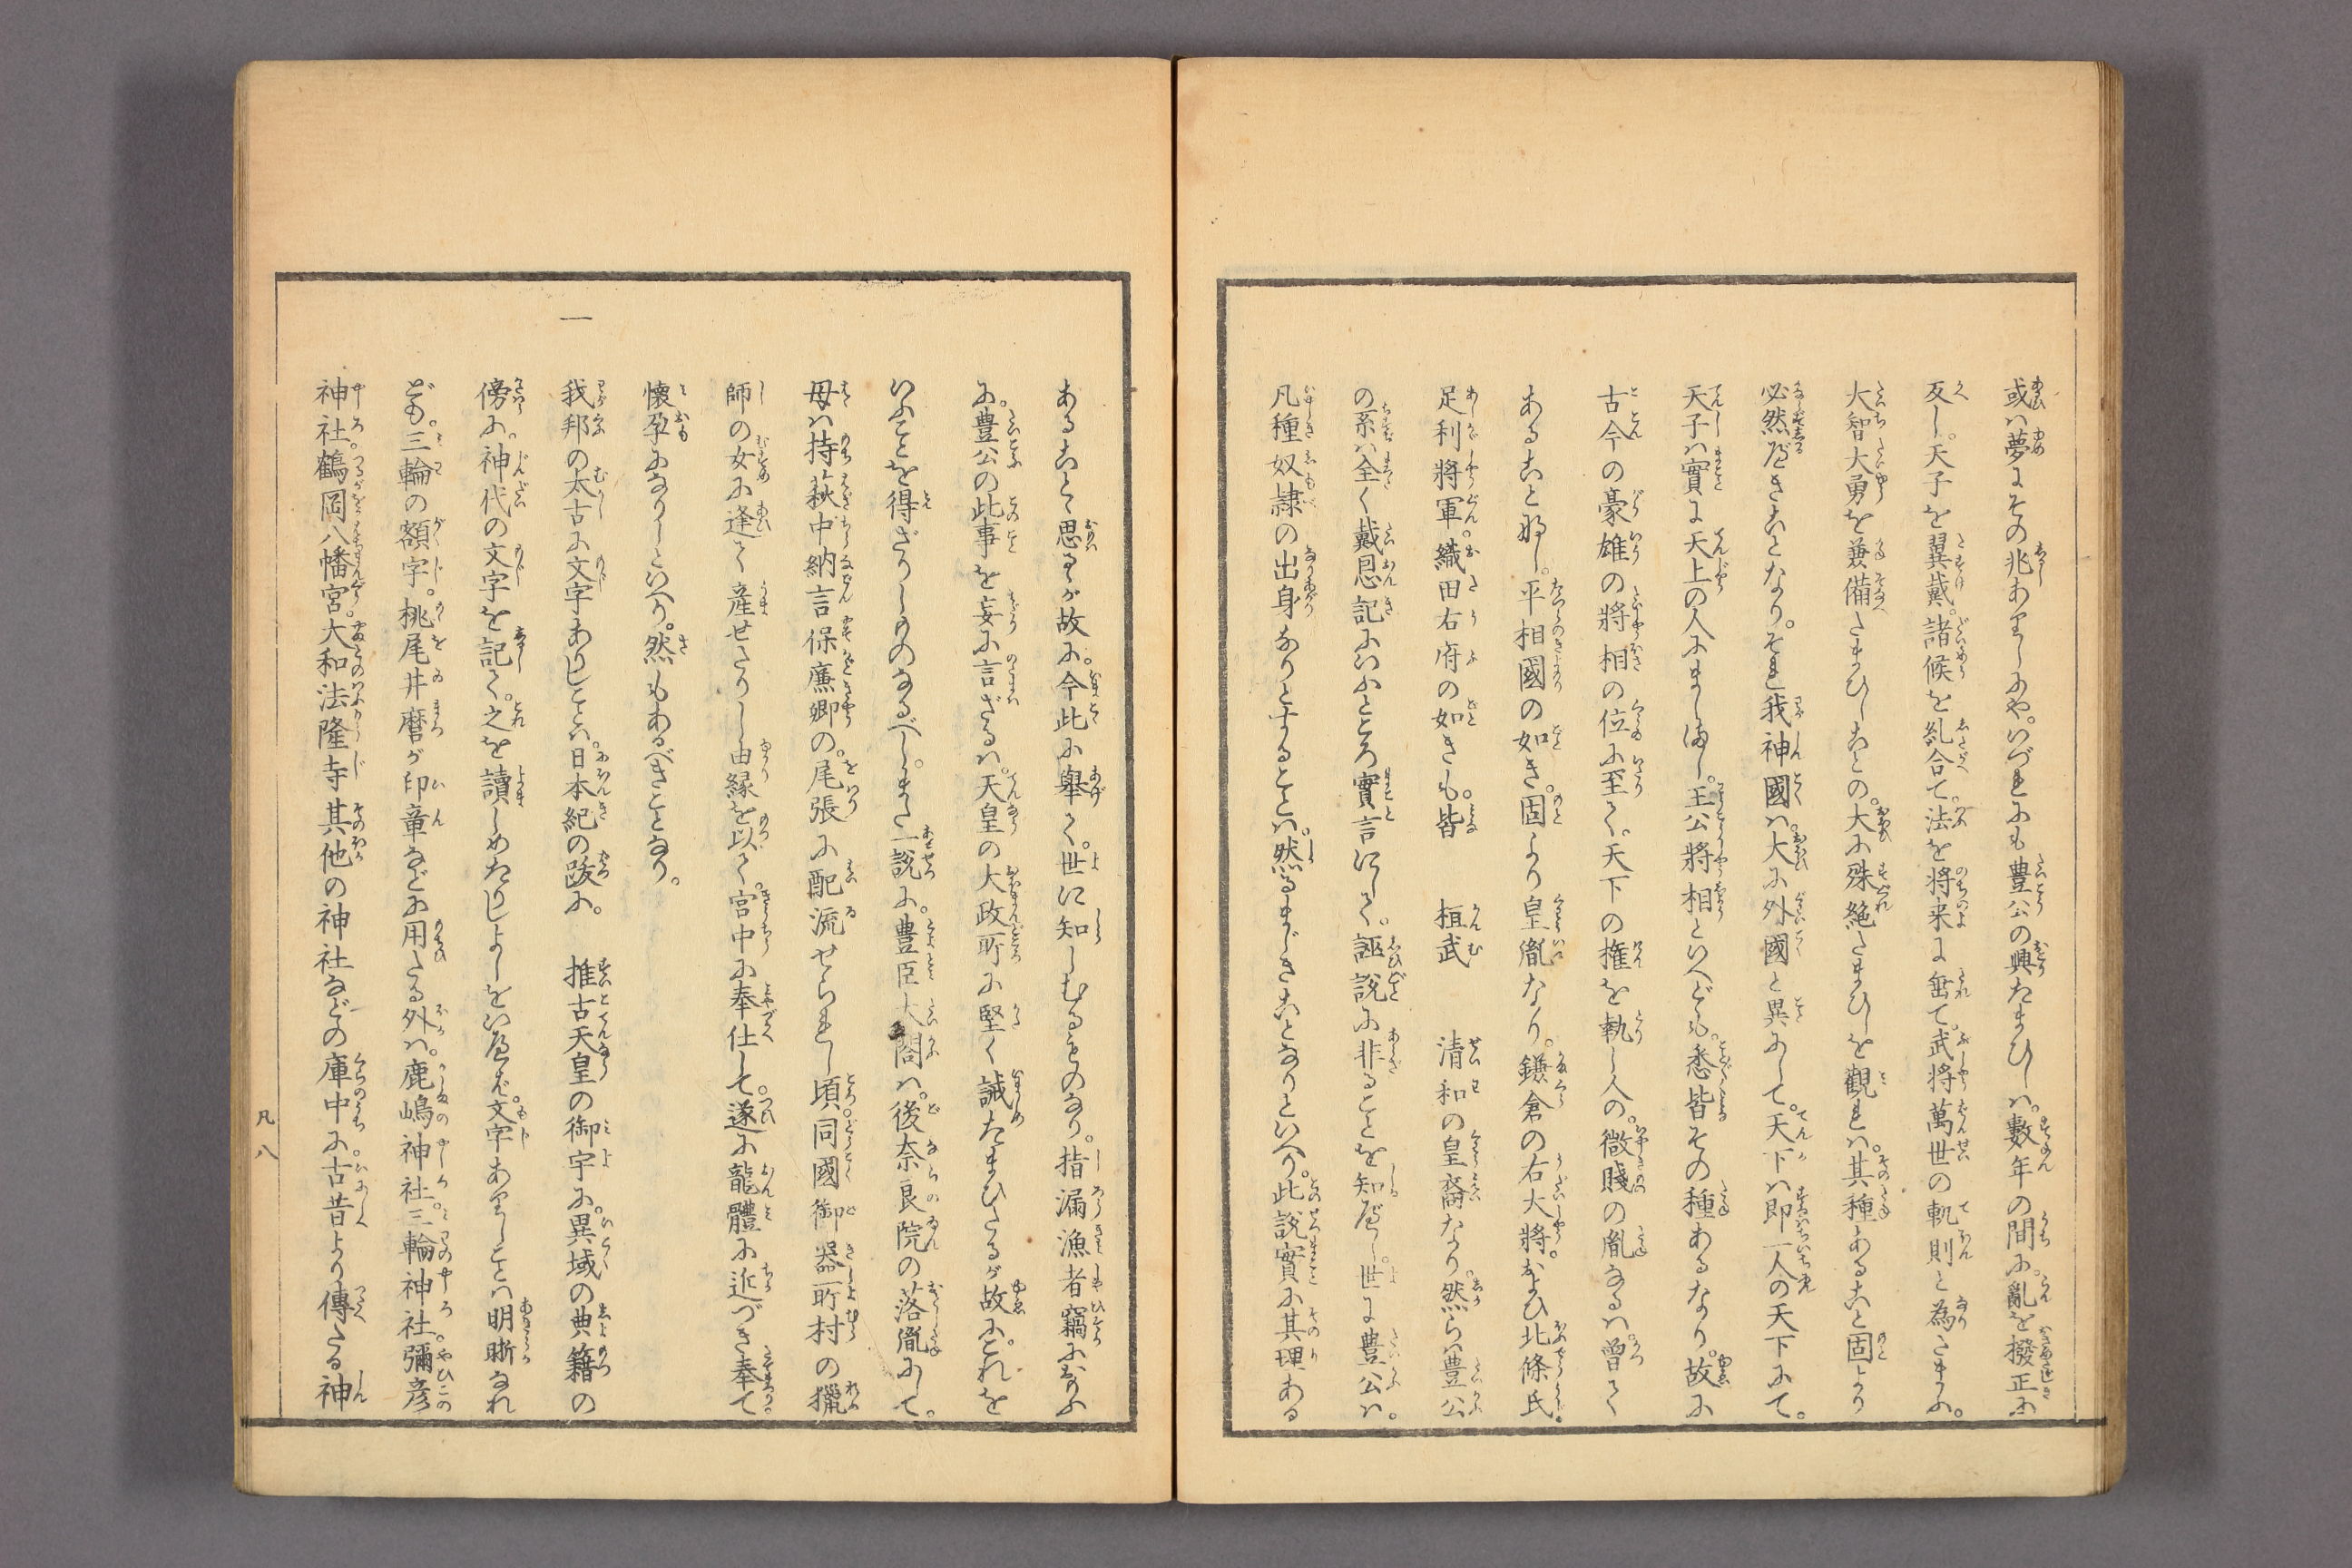 或ハ夢にその兆ありしにや。いづれにも豊公の興たまひしハ。數年の間に。亂を撥正に
反し。天子を翼戴。諸候を糺合て。法を将来に垂て。武将萬世の軌則と為たまふ。
大智大勇を兼備たまひしことの。大に殊絶たまひしを觀れハ。其種あること固より
必然べきことなり。それ我神國ハ。大に外國と異にして。天下ハ即一人の天下にて。
天子ハ實に天上の人にまします。王公將相といへども。悉皆その種あるなり。故に
古今の豪雄の將相の位に至て。天下の権を執し人の。微賤の胤なるハ。曾て
あること那し。平相國の如き。固より皇胤なり。鎌倉の右大將。および北條氏。
足利將軍。織田右府の如きも。皆　桓武　清和の皇裔なり。然らハ豊公
の系ハ全く戴恩記にいふところ實言にして。誣説に非ることを知べし。世に豊公ハ。
凡種奴隷の出身なりとするとハ。然るまじきことなりといへり。此説實に其理ある
あることゝ思るゝが故に。今此に舉て。世に知しむるものなり。指漏漁者竊におもふ
に。豊公の此事を妄に言ざるハ。天皇の大政所に堅く誡たまひたるが故に。これを
いふことを得ざりしものなるべし。また一説に。豊臣大閤ハ。後奈良院の落胤にて。
母ハ持萩中納言保廉卿の。尾張に配流せられし頃。同國御器所村の獵
師の女に逢て産せたりし由縁を以て。宮中に奉仕して。遂に龍體に近づき奉て
懷孕になりしといへり。然もあるべきことなり。
一　我邦の太古に文字ありしことハ。日本紀の跋に。　推古天皇の御宇に。異域の典籍の
傍に。神代の文字を記て。之を讀しめたりしよしをいへバ。文字ありしことハ明晰なれ
ども。三輪の額字。桃尾井磨が印章などに用たる外ハ。鹿嶋神社。三輪神社。彌彦
神社。鶴岡八幡宮。大和法隆寺其他の神社などの庫中に。古昔より傳たる神
凡八